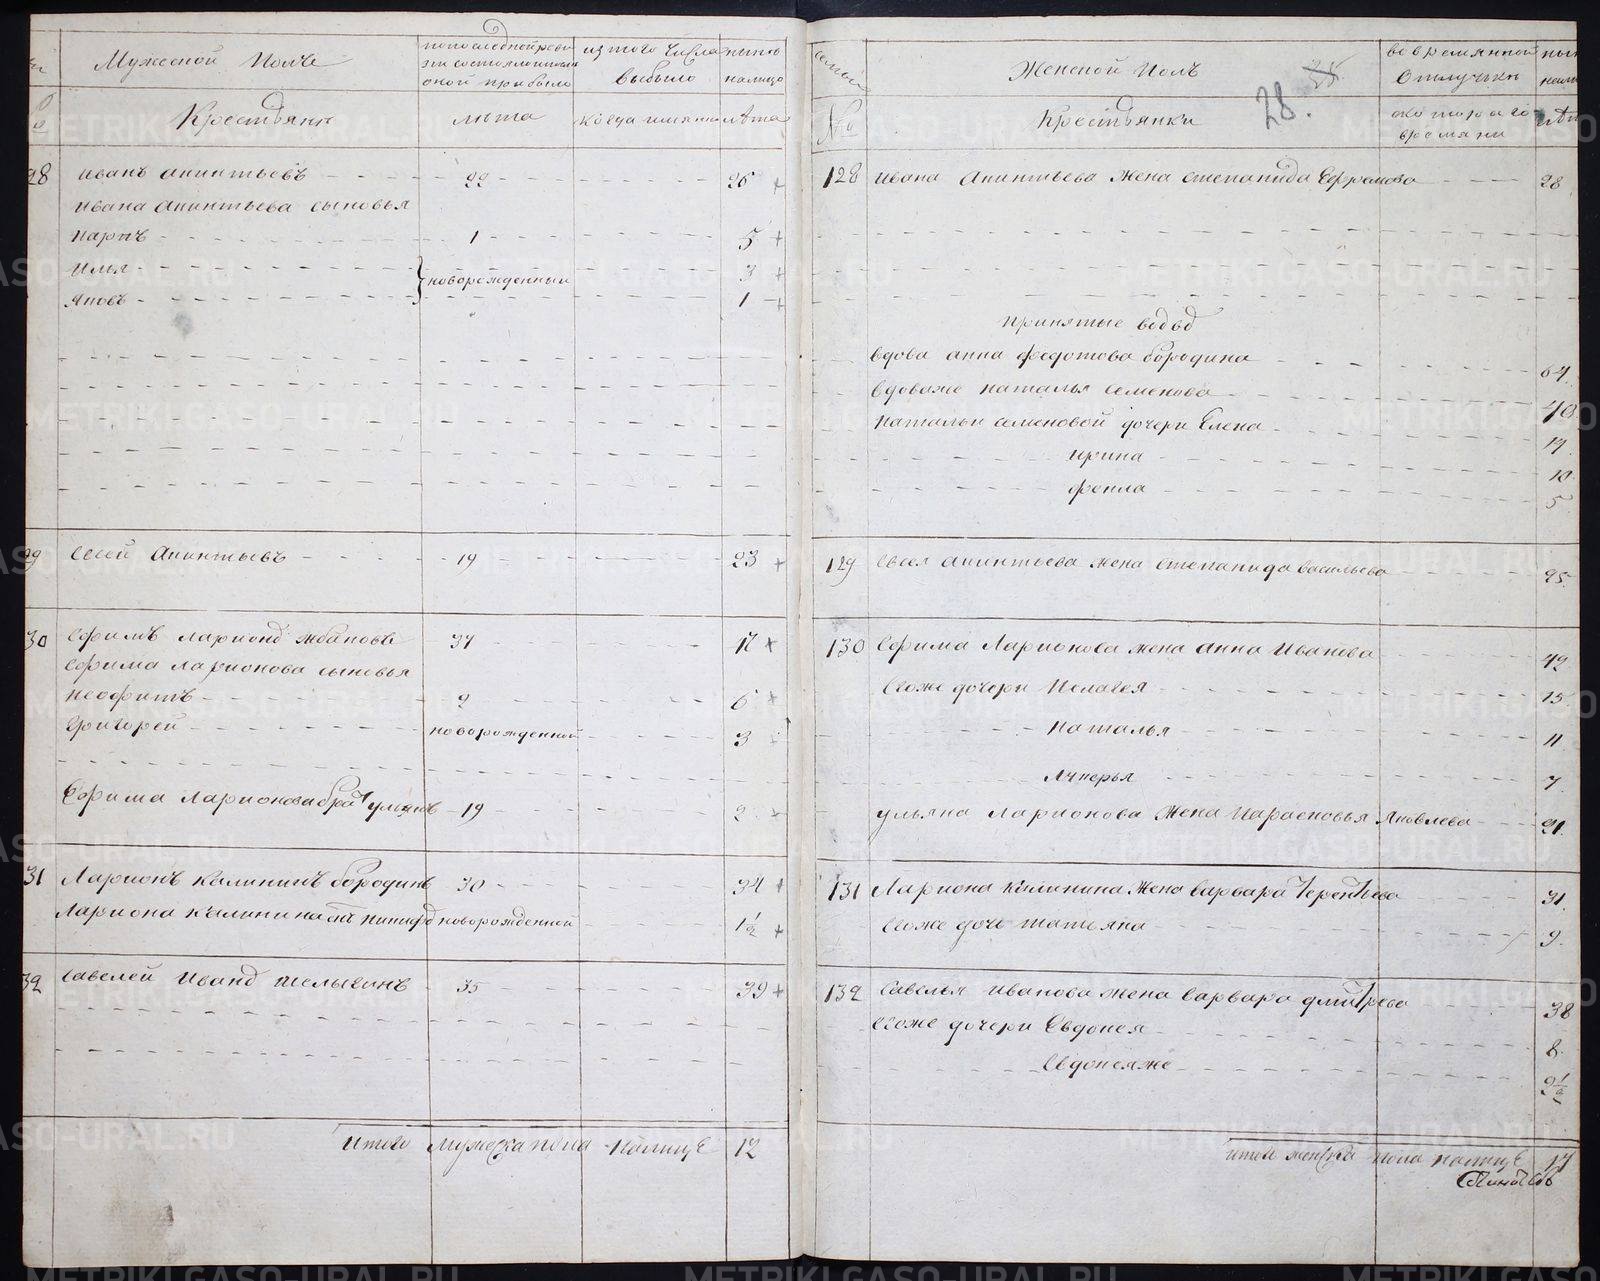 Мужеской Полъ
по последней реви
зіи состояло и после
оной прибыло
из того числа
выбыло
ныне
налицо
Крестьяне
лѣта
когда именно
лѣта
28 Иванъ Акинтьевъ 22 26
Ивана Акинтьева сыновья
Карпъ 1 5
Илья 3
новорожденныи
Яковъ 1
29 Евсей Акинтьевъ 19 23
30 Ефимъ Ларионо
Ефима Ларионова сыновья
Неофитъ 2 6
Григорей новорожденной 3
Ефима Ларионова брат Ульянъ 19 2
31 Ларионъ Калининъ Бородинъ 30 34
Лариона Калинина новорожденной 1½
32 Савелей Ивано 35 39
Итого Мужеска пола налице 12
Женской Полъ
28.
во временной
отлучке
ныне
№
Крестьянки
с которого
времяни
лѣт
128 Ивана Акинтьева жена Степанида Ефремова 28
принятые вдов
вдова Анна Федотова Бородина 64
вдова же Наталья Семенова 40
Натальи Семеновой дочери Елена 14
Ирина 10
Фекла 5
129 Евсея Акинтьева жена Степанида Васильева 25
130 Ефима Ларионова жена Анна Иванова 42
Егоже дочери Пелагея 15
Наталья 11
Лукерья 7
Ульяна Ларионова жена Парасковья Яковлева 21
131 Лариона Калинина жена Варвара Терентьева 31
Егоже дочь Татьяна 9
132 Савелья Иванова жена Варвара Дмитрева 38
Егоже дочери Евдокея 8
Евдокея же 2½
Итого женска пола налице 17
METRIKI.GASO-URAL.RU